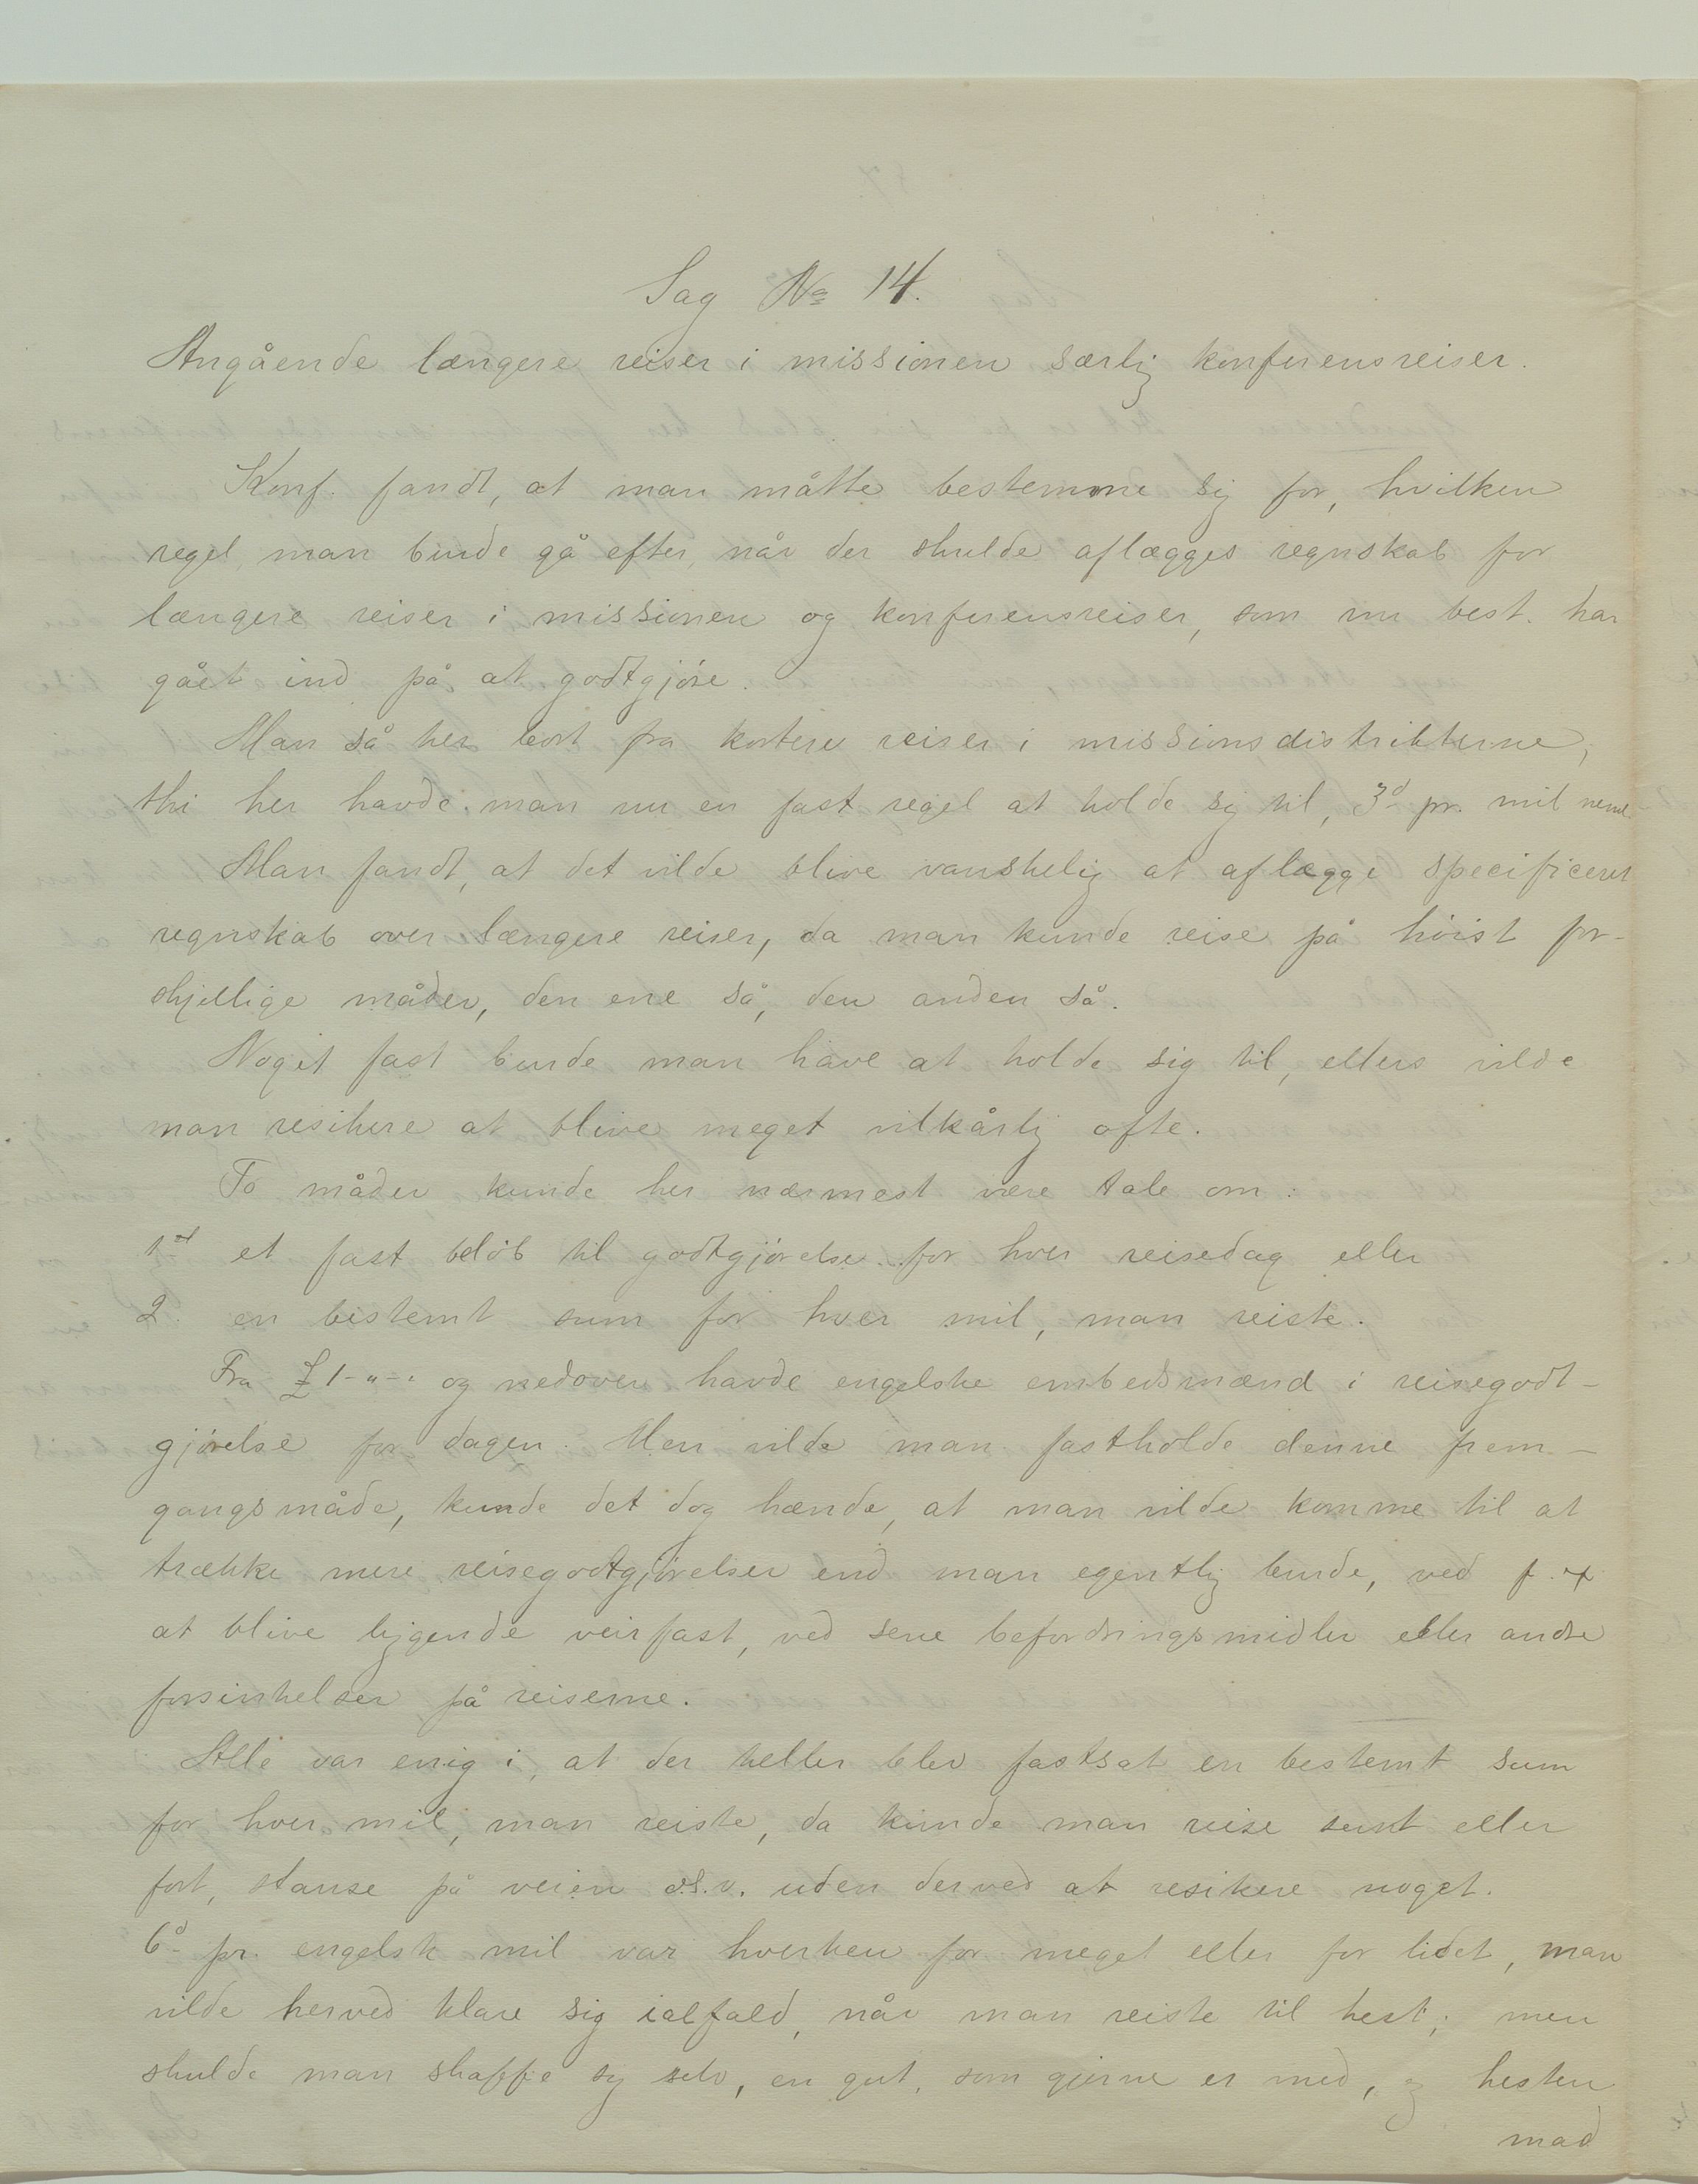 Sag No 14.
Angående længere reiser i missionen særlig konferensreiser.
Konf. fandt, at man måtte bestemme sig for, hvilken
regel, man burde gå efter, når der skulde aflægges regnskab for
længere reiser i missionen og konferensreiser, som nu best. har
gået ind på at godtgjöre.
Man så her bort fra kortere reiser i missionsdistrikterne,
thi her havde man nu en fast regel at holde sig til, 3d pr. mil neml.
Man fandt, at det vilde blive vanskelig at aflægge specificeret
regnskab over længere reiser, da man kunde reise på höist for-
skjellige måder, den ene så, den anden så.
Noget fast burde man have at holde sig til, ellers vilde
man resikere at blive meget vilkårlig ofte.
To måder kunde her nærmest være tale om:
1st et fast belöb til godtgjörelse for hver reisedag eller
2. en bestemt sum for hver mil, man reiste.
Fra £1-"-" og nedover havde engelske embedsmænd i reisegodt-
gjörelse for dagen. Men vilde man fastholde denne frem-
gangsmåde, kunde det dog hænde, at man vilde komme til at
trække mere reisegodtgjörelser end man egentlig burde, ved f. ex
at blive liggende veirfast, ved sene befordringsmidler eller andre
forsinkelser på reiserne.
Alle var enig i, at der heller blev fastsat en bestemt sum
for hver mil, man reiste, da kunde man reise sent eller
fort, stanse på veien o.s.v. uden derved at resikere noget.
6d pr. engelsk mil var hverken for meget eller for lidet, man
vilde herved klare sig ialfald, når man reiste til hest; men
skulde man skaffe sig selv, en gut, som gjerne er med, og hesten
mad